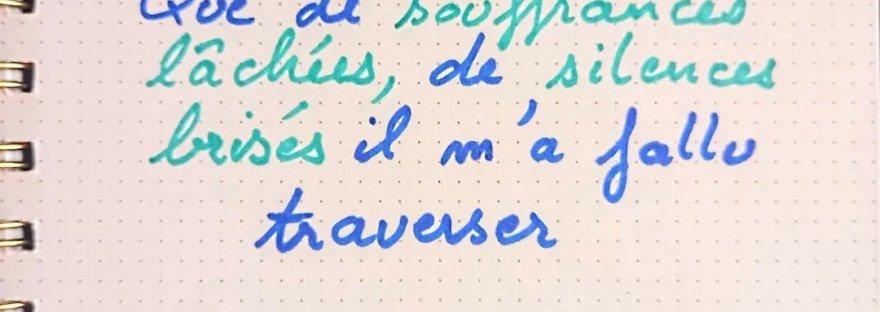 Que de souffrances
lâchées, de silences
brisés il m'a fallu
traverser